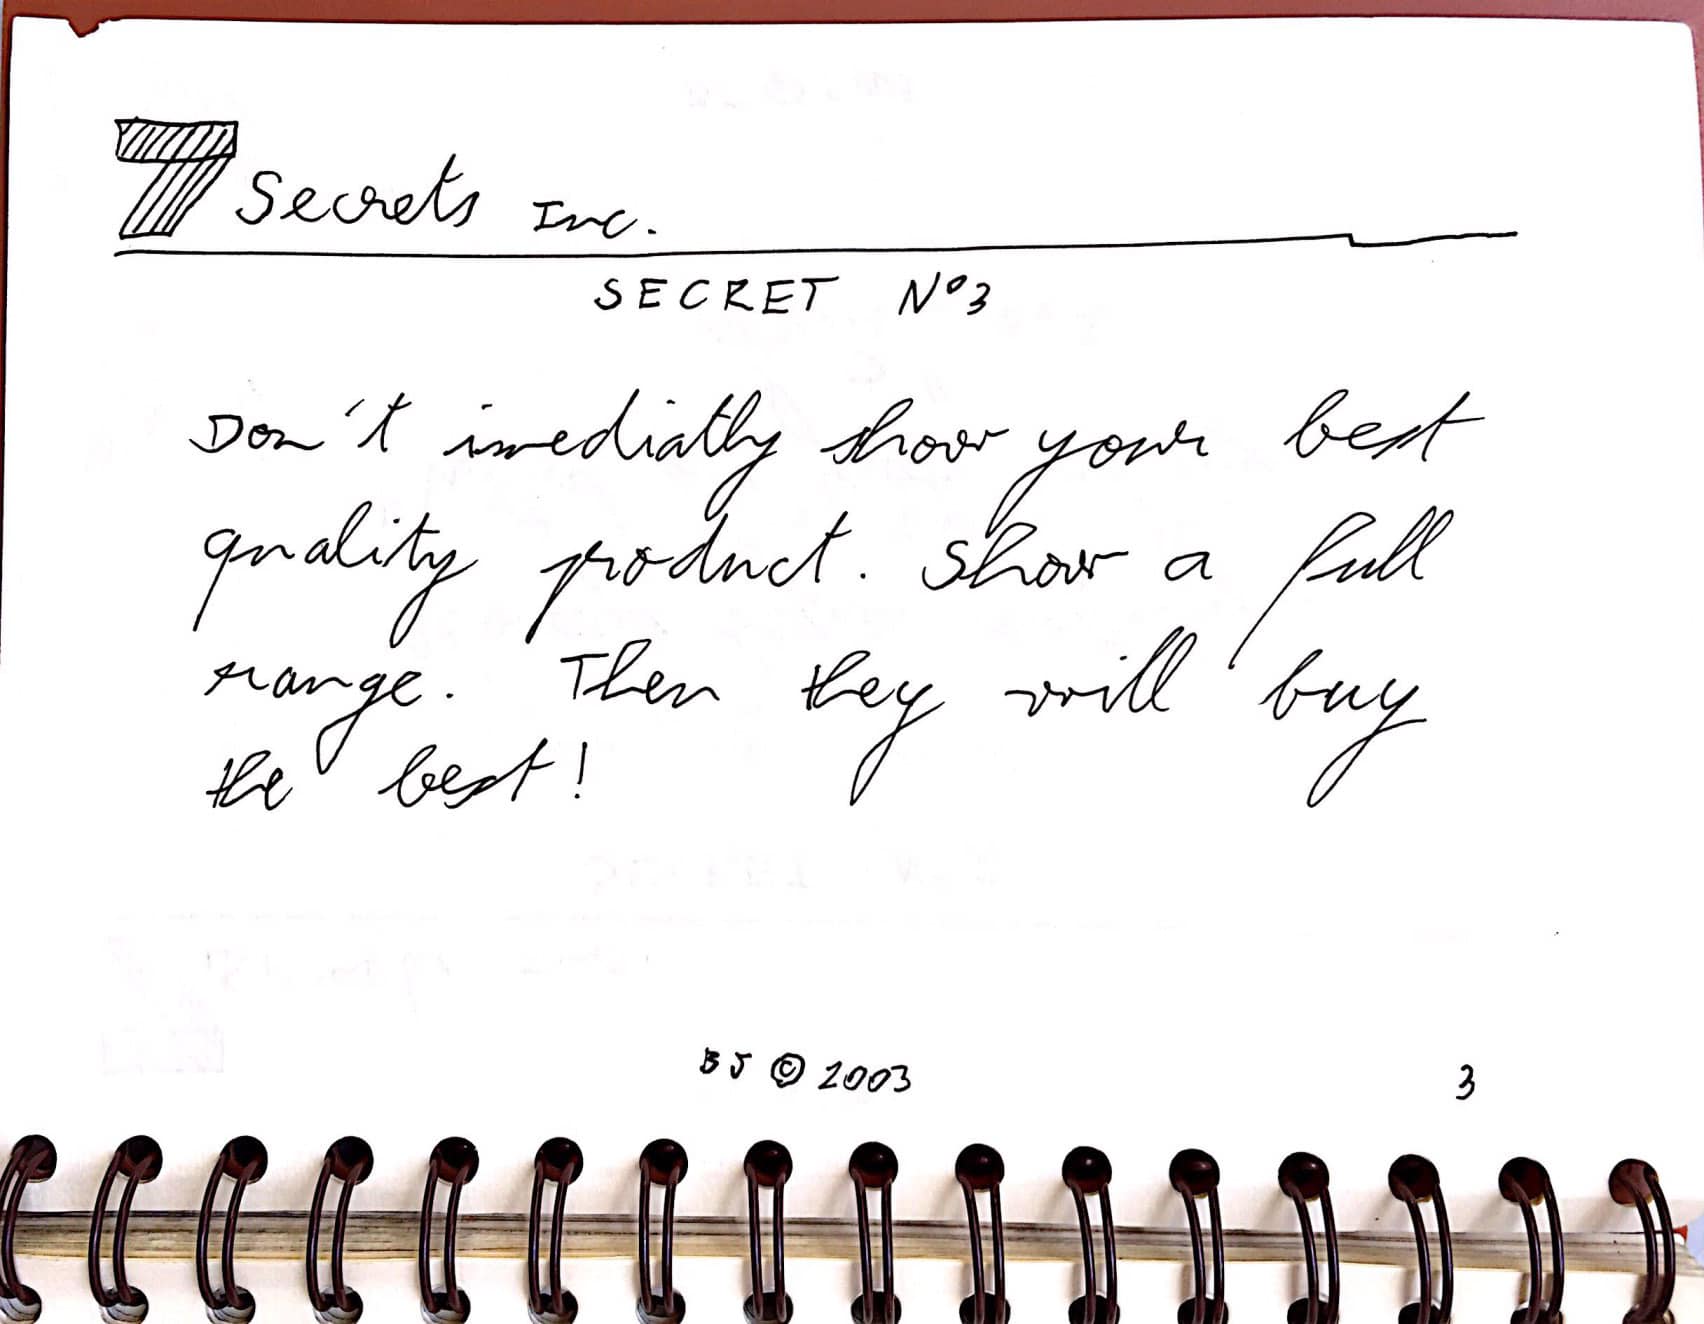 7 Secrets Inc.
SECRET Nº3
Don't imediatly show your best
quality product. Show a full
range. Then they will buy
the best!
BJ © 2003
3